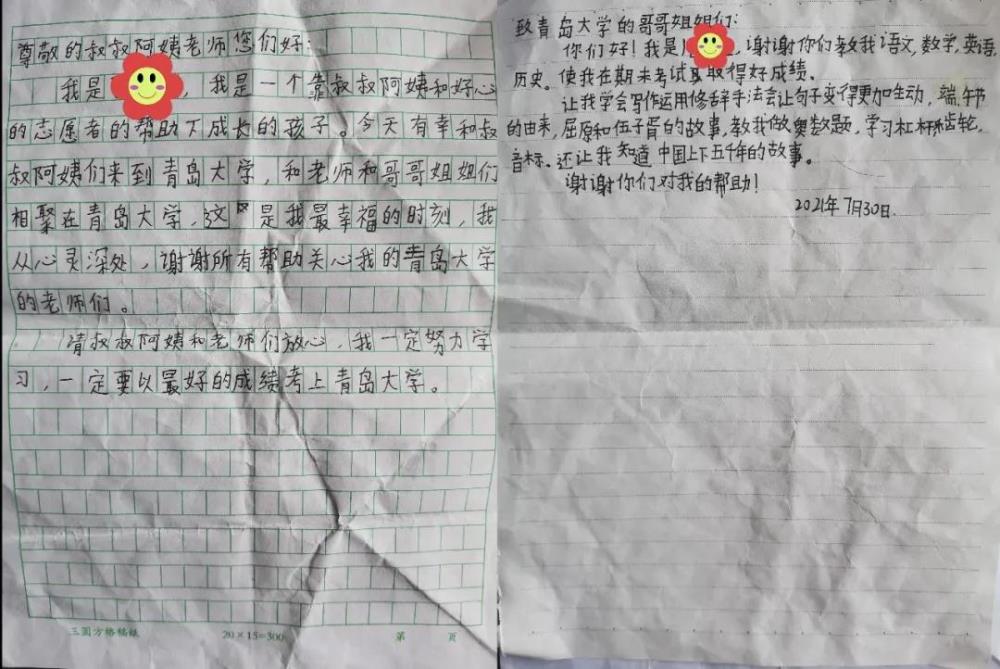 尊敬的叔叔阿姨老师您们好：
我是 ，我是一个靠叔叔阿姨和好心
的志愿者的帮助下成长的孩子。今天有幸和叔
叔阿姨们来到青岛大学，和老师和哥哥姐姐们
相聚在青岛大学，这 是我最幸福的时刻，我
从心灵深处，谢谢所有帮助关心我的青岛大学
的老师们。
请叔叔阿姨和老师们放心，我一定努力学
习，一定要以最好的成绩考上青岛大学。
三圆方格稿纸 20×15=300 第 页
致青岛大学的哥哥姐姐们：
你们好！我是 ，谢谢你们教我语文，数学，英语，
历史。使我在期末考试 取得好成绩。
让我学会写作运用修辞手法会让句子变得更加生动，端午节
的由来，屈原和伍子胥的故事，教我做奥数题，学习杠杆 齿轮，
音标。还让我知道中国上下五千年的故事。
谢谢你们对我的帮助！
2021年7月30日.